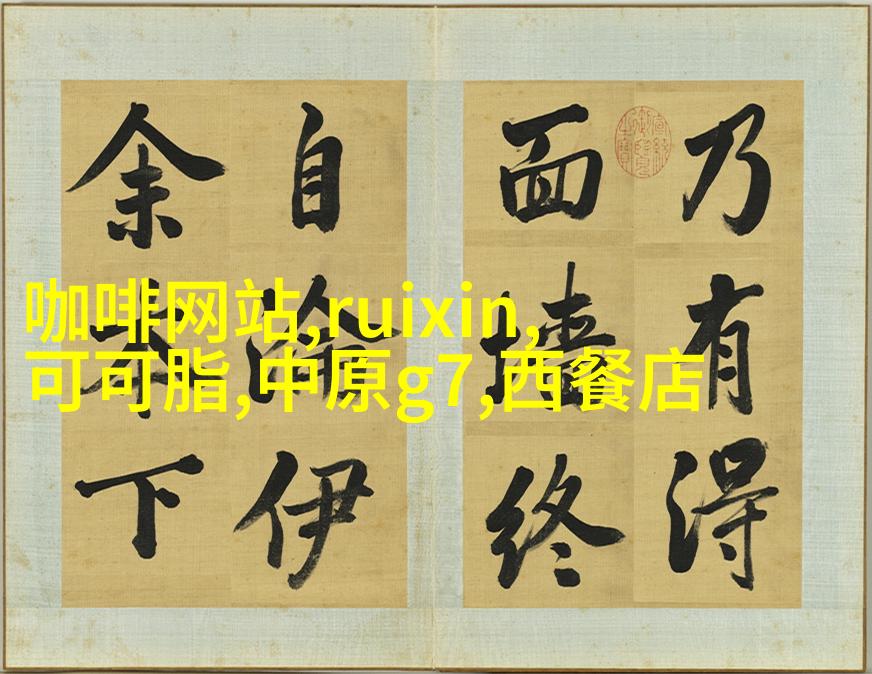 咖啡网站,ruixin,
可可脂,中原g7,西餐店
乃有得
面墙终
自伊
余下